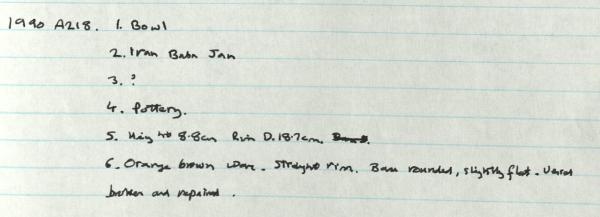 1990 A218. 1. Bowl
2. Iran Baba Jan
3. ?
4. Pottery.
5. Height 8.8cm Rim D. 18.7cm.
6. Orange brown ware. Straight rim. Base rounded, slightly flat. Vessel
broken and repaired.